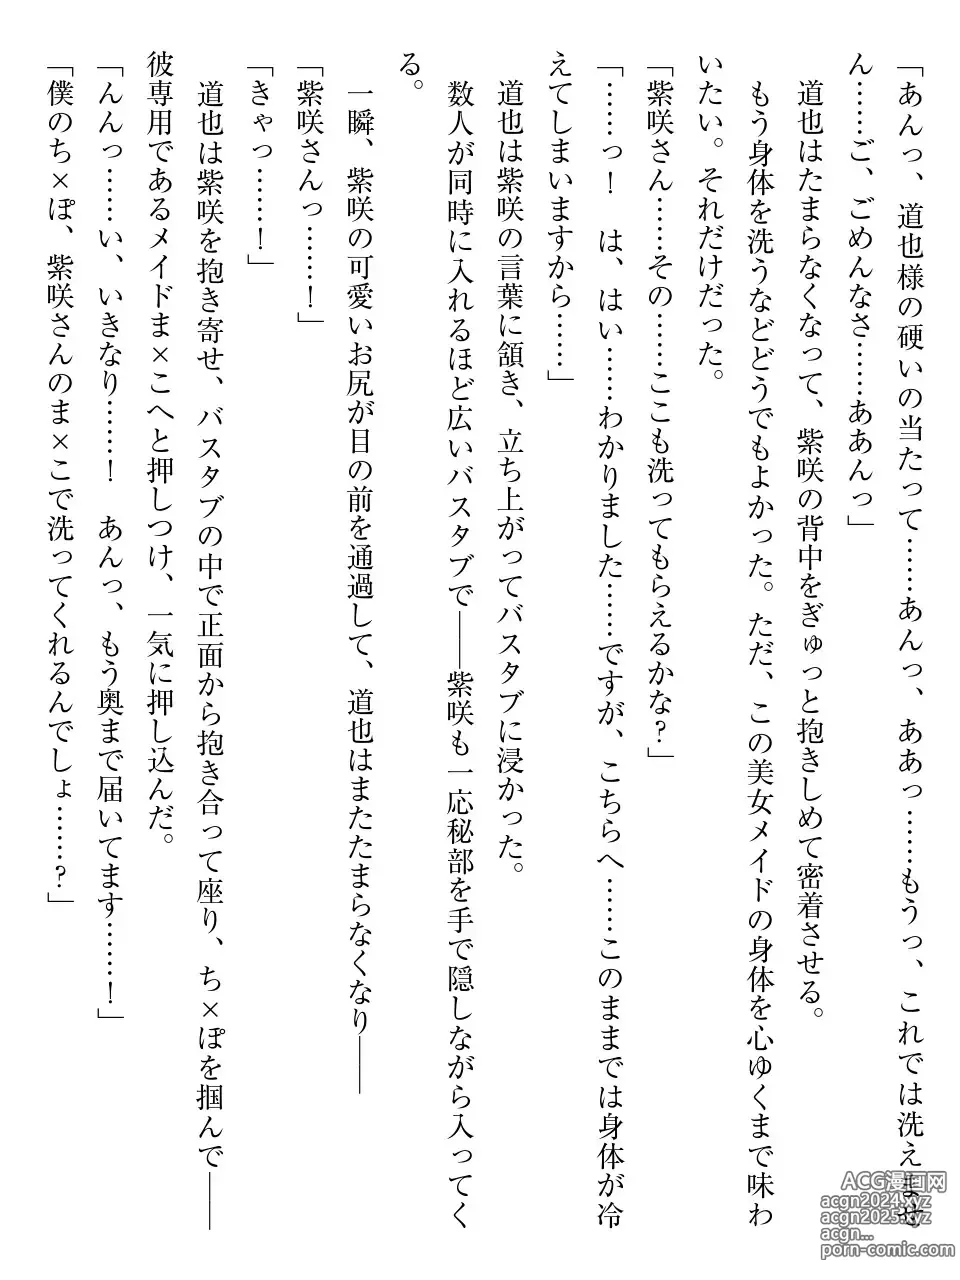 「あんっ、道也様の硬いの当たって……あんっ、ああっ……もうっ、これでは洗えませ
ん……ご、ごめんなさ……ああんっ」
　道也はたまらなくなって、紫咲の背中をぎゅっと抱きしめて密着させる。
　もう身体を洗うなどどうでもよかった。ただ、この美女メイドの身体を心ゆくまで味わ
いたい。それだけだった。
「紫咲さん……その……ここも洗ってもらえるかな？」
「……っ！　は、はい……わかりました……ですが、こちらへ……このままでは身体が冷
えてしまいますから……」
　道也は紫咲の言葉に頷き、立ち上がってバスタブに浸かった。
　数人が同時に入れるほど広いバスタブで――紫咲も一応秘部を手で隠しながら入ってく
る。
　一瞬、紫咲の可愛いお尻が目の前を通過して、道也はまたたまらなくなり――
「紫咲さんっ……！」
「きゃっ……！」
　道也は紫咲を抱き寄せ、バスタブの中で正面から抱き合って座り、ち×ぽを掴んで――
彼専用であるメイドま×こへと押しつけ、一気に押し込んだ。
「んんっ……い、いきなり……！　あんっ、もう奥まで届いてます……！」
「僕のち×ぽ、紫咲さんのま×こで洗ってくれるんでしょ……？」
ACG漫画网
acgn2024.xyz
acgn2025.xyz
acgn...
porn-comic.com